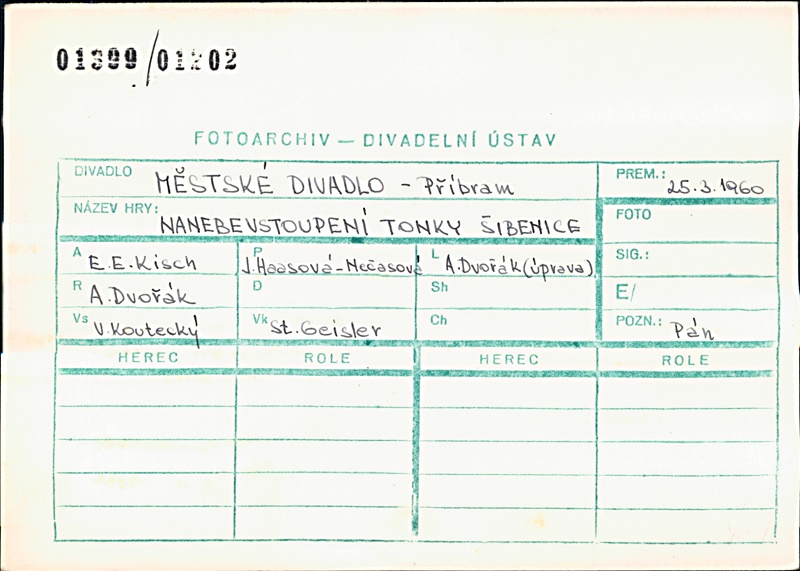 01399/01202
FOTOARCHIV — DIVADELNÍ ÚSTAV
DIVADLO MĚSTSKÉ DIVADLO - Příbram PREM.: 25.3.1960
NÁZEV HRY: NANEBEVSTOUPENÍ TONKY ŠIBENICE FOTO
A E.E.Kisch P J.Haasová-Nečasová L A.Dvořák (úprava) SIG.:
R A.Dvořák D Sh E/
Vs V.Koutecký Vk St.Geisler Ch POZN.: Pán
HEREC ROLE HEREC ROLE